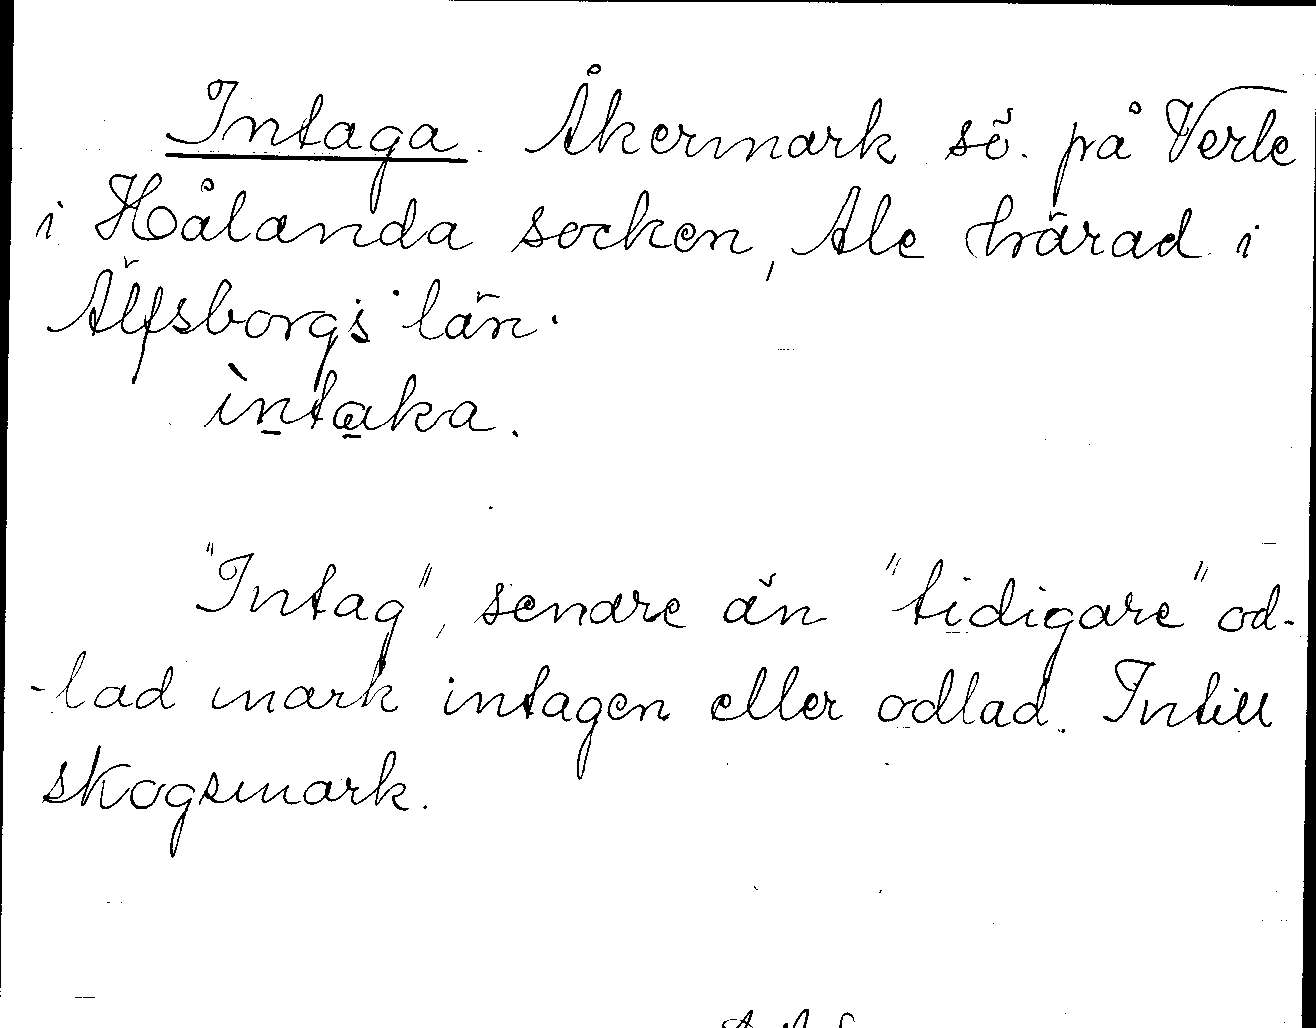 Intaga. Åkermark sö. på Verle
i Hålanda socken, Ale härad i
Älfsborgs län.
ìntaka.
"Intag", senare än "tidigare" od-
-lad mark intagen eller odlad. Intill
skogsmark.